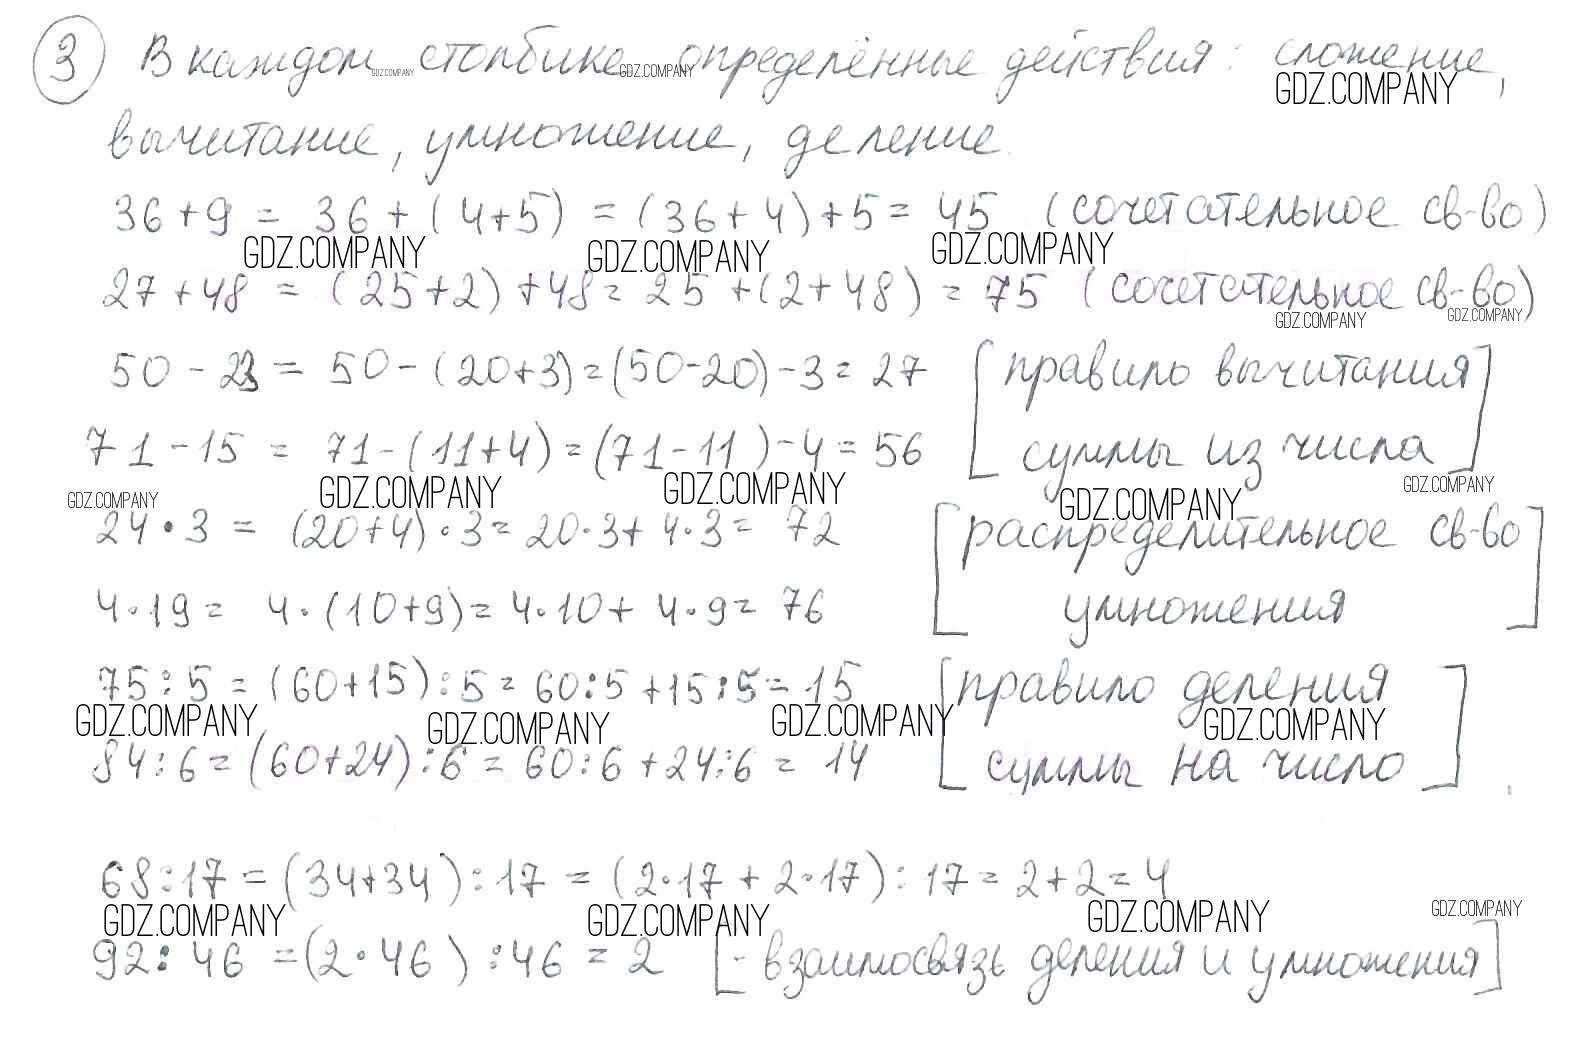 3 В каждом столбике определённые действия: сложение,
GDZ.COMPANY GDZ.COMPANY GDZ.COMPANY
вычитание, умножение, деление.
36 + 9 = 36 + (4+5) = (36+4)+5 = 45 (сочетательное св-во)
GDZ.COMPANY GDZ.COMPANY GDZ.COMPANY
27 + 48 = (25+2) + 48 = 25 + (2+48) = 75 (сочетательное св-во)
GDZ.COMPANY GDZ.COMPANY
50 - 23 = 50 - (20+3) = (50-20) - 3 = 27 [правило вычитания
71 - 15 = 71 - (11+4) = (71-11) - 4 = 56 суммы из числа]
GDZ.COMPANY GDZ.COMPANY GDZ.COMPANY GDZ.COMPANY GDZ.COMPANY
24 · 3 = (20+4) · 3 = 20·3 + 4·3 = 72 [распределительное св-во
4·19 = 4·(10+9) = 4·10 + 4·9 = 76 умножения]
75 : 5 = (60+15) : 5 = 60:5 + 15:5 = 15 [правило деления
GDZ.COMPANY GDZ.COMPANY GDZ.COMPANY GDZ.COMPANY
84 : 6 = (60+24) : 6 = 60:6 + 24:6 = 14 суммы на число]
68 : 17 = (34+34) : 17 = (2·17 + 2·17) : 17 = 2+2 = 4
GDZ.COMPANY GDZ.COMPANY GDZ.COMPANY GDZ.COMPANY
92 : 46 = (2·46) : 46 = 2 [- взаимосвязь деления и умножения]